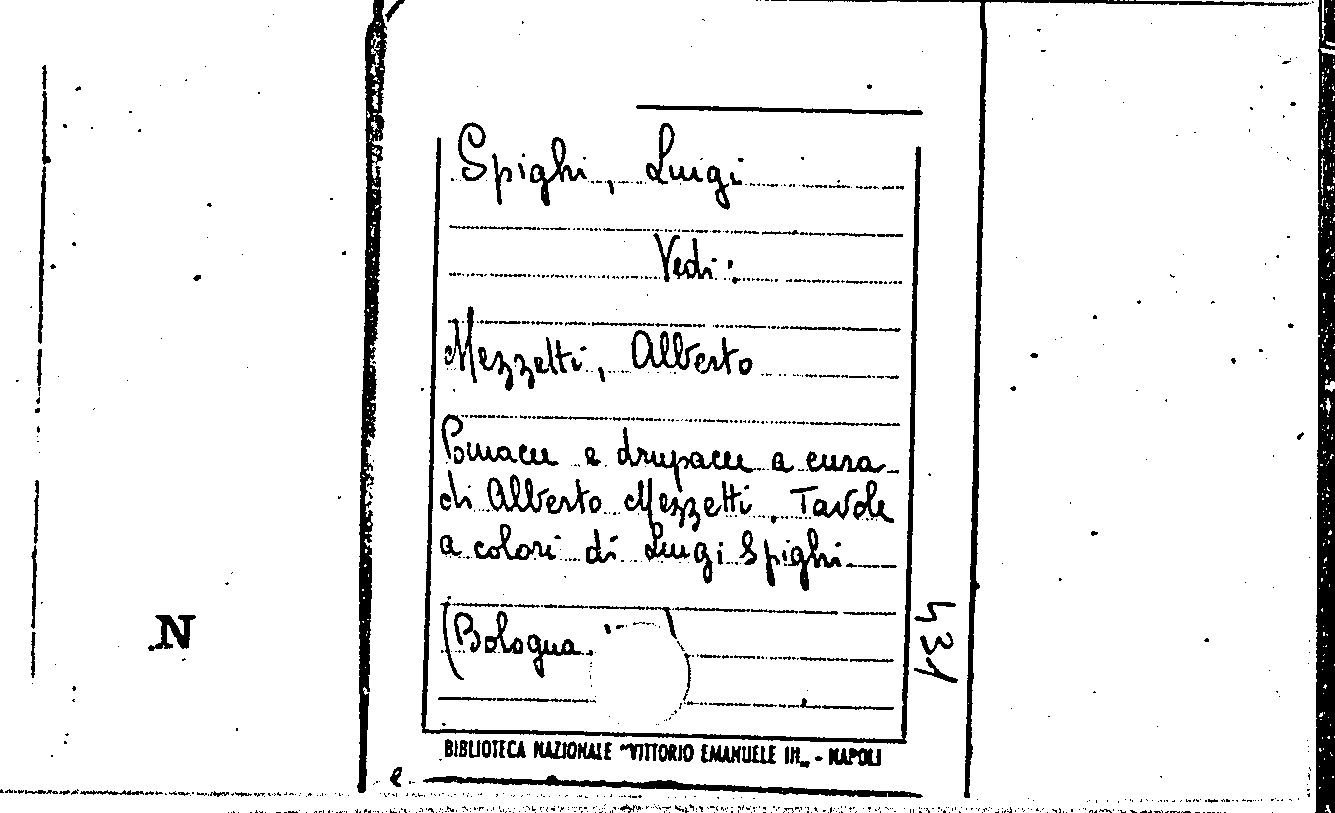 Spighi, Luigi
Vedi:
Mezzetti, Alberto
Pomacee e drupacee a cura
di Alberto Mezzetti. Tavole
a colori di Luigi Spighi.
(Bologna.
431
N
BIBLIOTECA NAZIONALE "VITTORIO EMANUELE III„ - NAPOLI
e